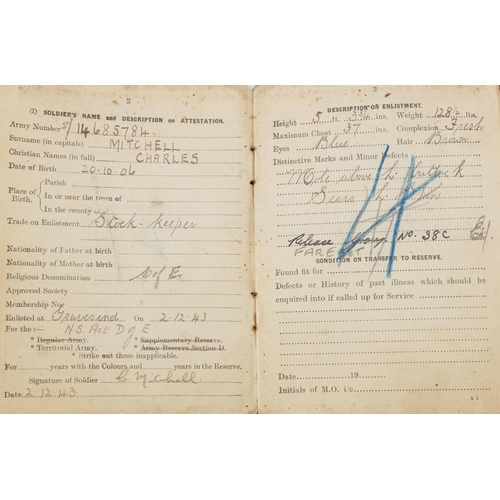 2
(I) SOLDIER'S NAME and DESCRIPTION on ATTESTATION.
Army Number S/14685784
Surname (in capitals) MITCHELL
Christian Names (in full) CHARLES
Date of Birth 20.10.06
Place of Birth.
Parish
In or near the town of
In the county of
Trade on Enlistment Stock-keeper
Nationality of Father at birth
Nationality of Mother at birth
Religious Denomination C of E.
Approved Society
Membership No.
Enlisted at Gravesend On 2.12.43
For the :— N.S. Act D of E
* Regular Army. * Supplementary Reserve.
* Territorial Army. * Army Reserve Section D.
* Strike out those inapplicable.
For years with the Colours and years in the Reserve.
Signature of Soldier C. Mitchell.
Date 2.12.43
3
DESCRIPTION ON ENLISTMENT.
Height 5 ft. 3¾ ins. Weight 128½ lbs.
Maximum Chest 37 ins. Complexion Fresh
Eyes Blue Hair Brown
Distinctive Marks and Minor Defects
Mole above Buttock
Scars
Please Group No. 38C
FAR EAST
CONDITION ON TRANSFER TO RESERVE.
Found fit for
Defects or History of past illness which should be
enquired into if called up for Service
Date 19
Initials of M.O. i/c
A 2